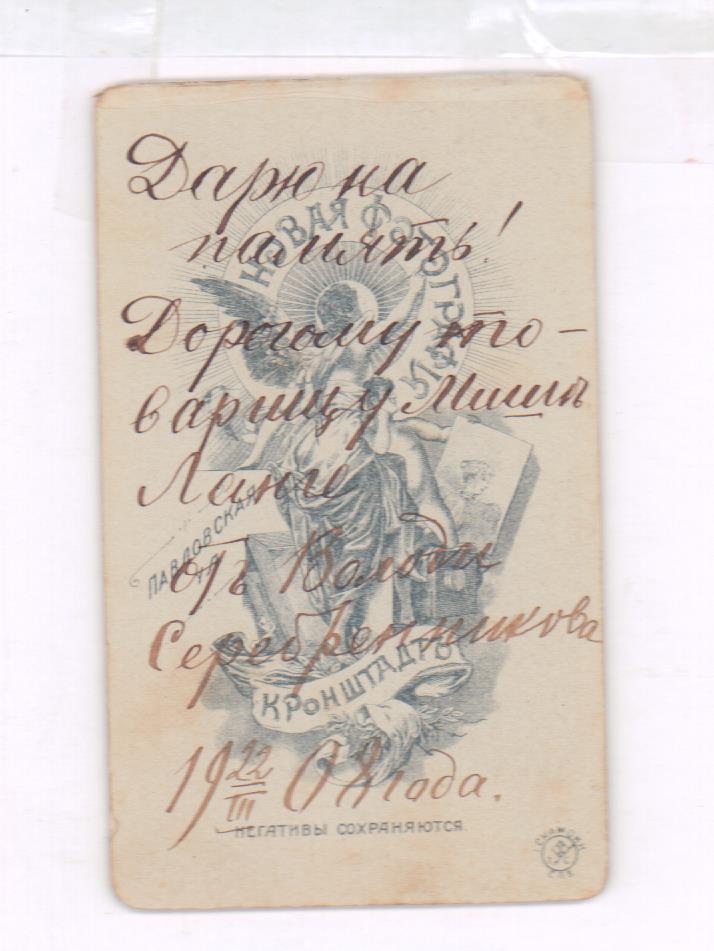 Дарю на
память!
Дорогому то-
варищу Мишѣ
Ланге
отъ Володи
Серебренникова
19 22/III 08 года.
НОВАЯ ФОТОГРАФІЯ
ПАВЛОВСКАЯ
УЛ.
КРОНШТАДТЪ
НЕГАТИВЫ СОХРАНЯЮТСЯ.